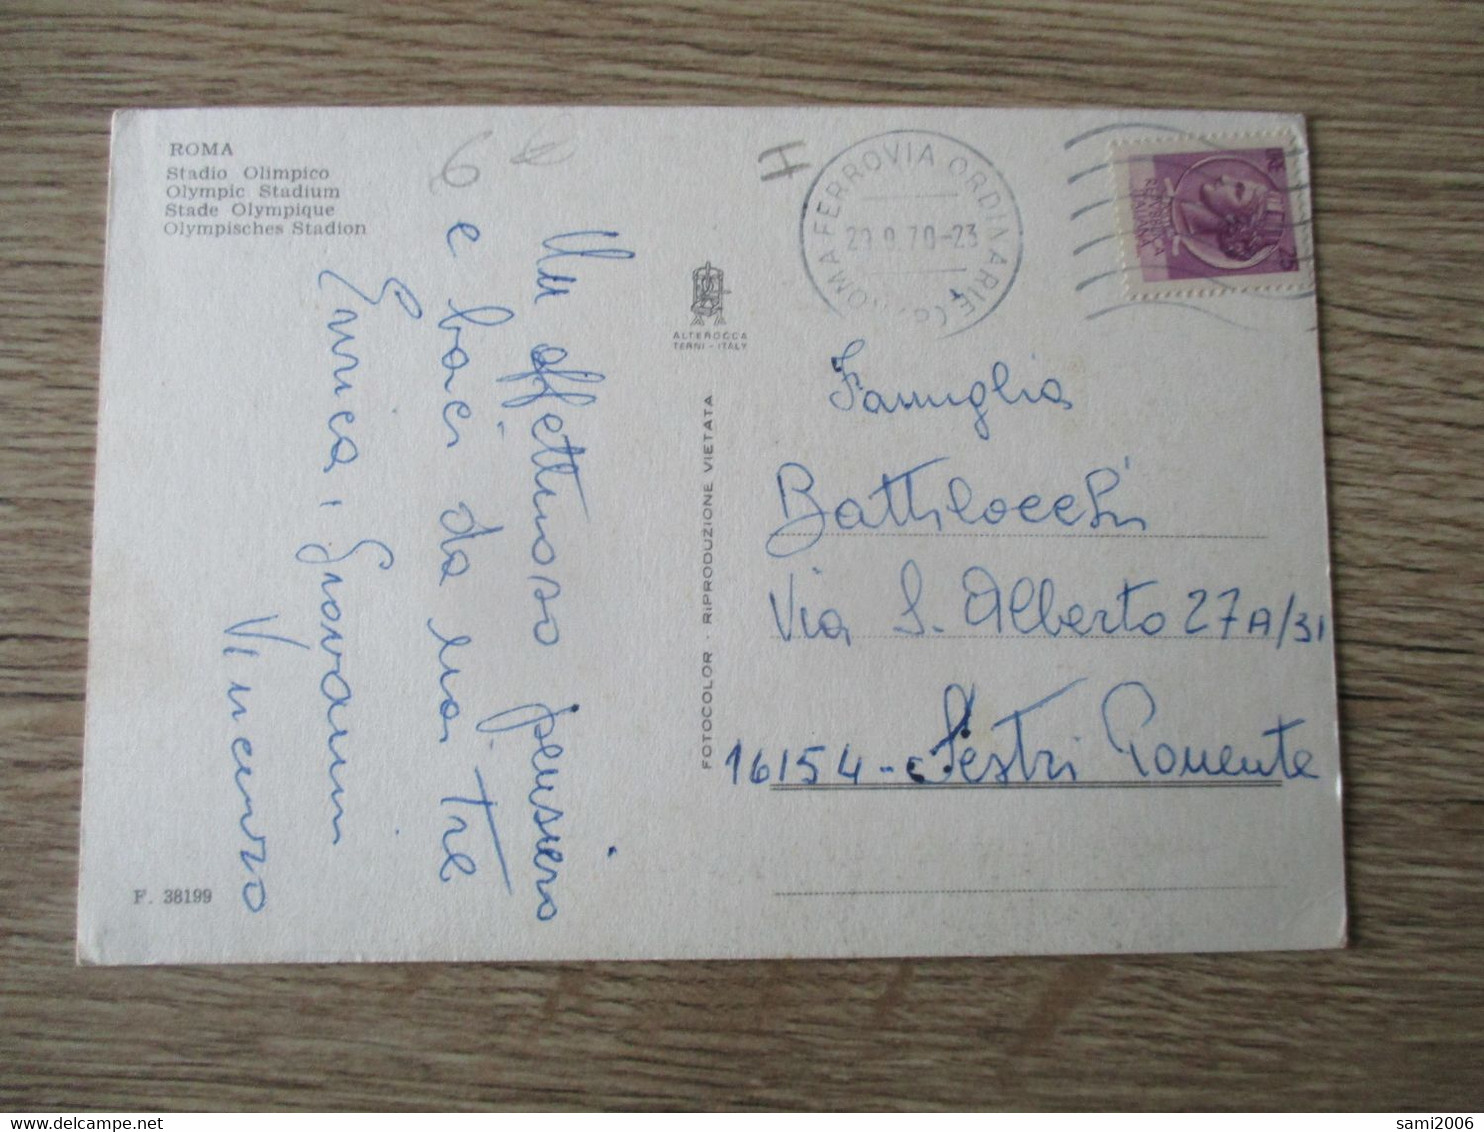 ROMA
Stadio Olimpico
Olympic Stadium
Stade Olympique
Olympisches Stadion
6
Un affettuoso pensiero
e baci da noi tre
Enrica, Giovanni
Vincenzo
F. 38199
ALTEROCCA
TERNI - ITALY
FOTOCOLOR · RIPRODUZIONE VIETATA
H
ROMA FERROVIA ORDINARIE
29.9.70-23
REPUBBLICA
ITALIANA
LIRE
25
Famiglia
Battilocchi
Via S. Alberto 27A/31
16154 - Sestri Ponente
sami2006